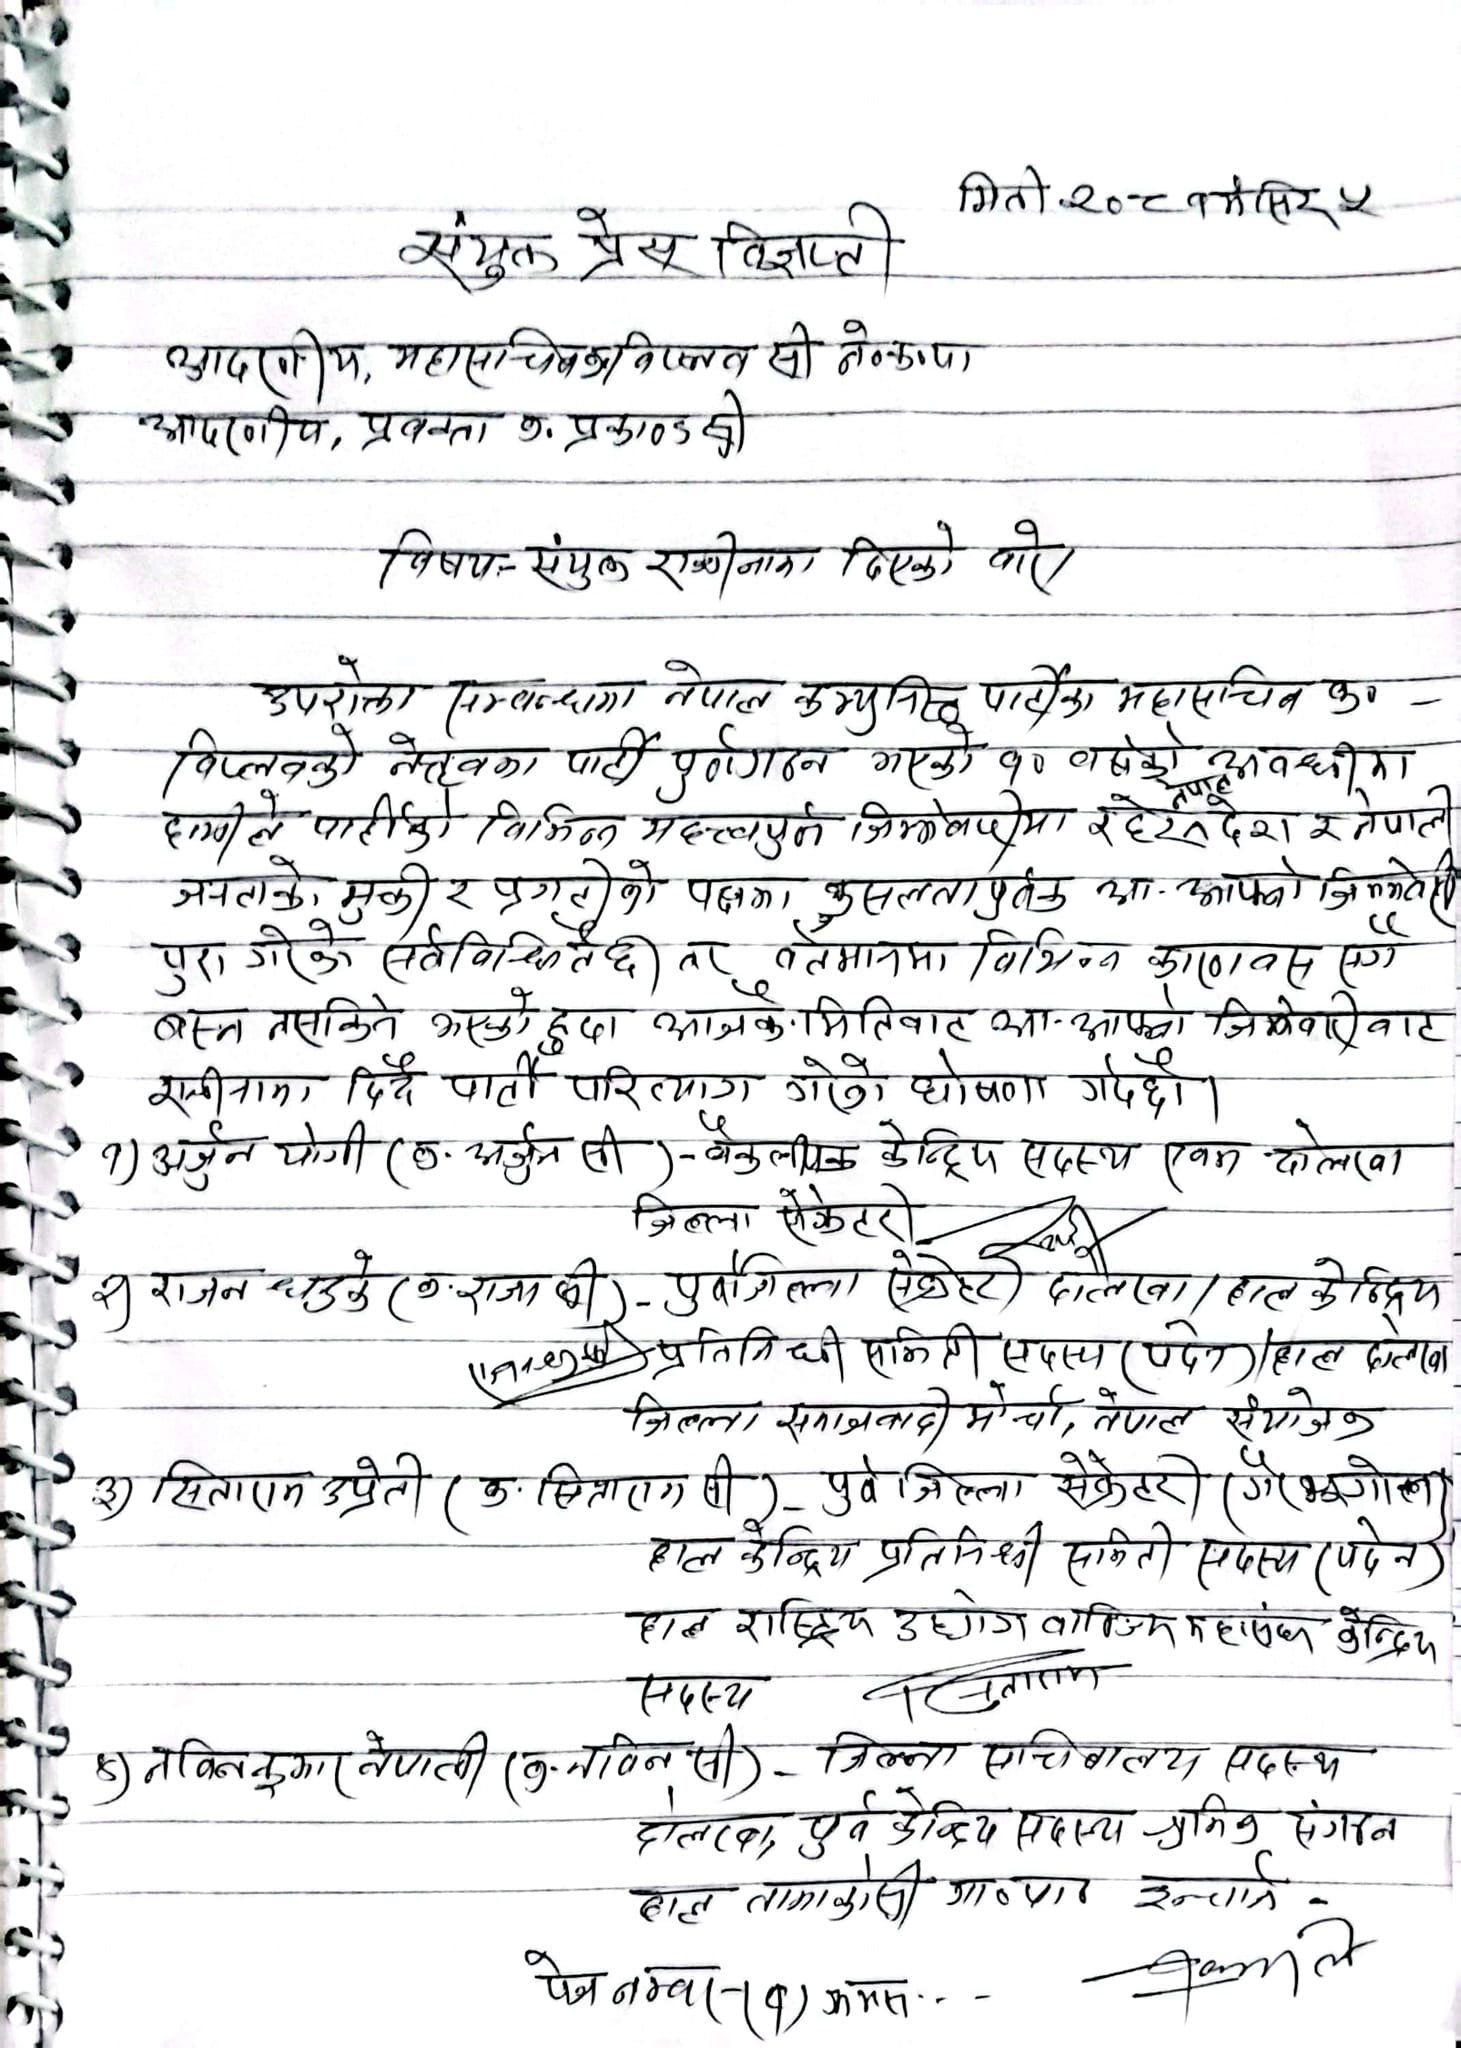 मिती.२०८१ मंसिर ५
संयुक्त प्रेस विज्ञप्ती
आदरणीय, महासचिव क. विप्लव सी नेकपा
आदरणीय, प्रवक्ता क. प्रकाण्ड सी
विषय:- संयुक्त राजीनामा दिएको बारे।
उपरोक्त सम्बन्धमा नेपाल कम्युनिस्ट पार्टीका महासचिव क० -
विप्लवको नेतृत्वमा पार्टी पुर्नगठन भएको १० वर्षको अवधीमा
हामीले पार्टीको विभिन्न महत्त्वपुर्ण जिम्मेवारीमा रहेर नेपाल देश र नेपाली
जनताको मुक्ती र प्रगतीको पक्षमा कुसलतापुर्वक आ-आफ्नो जिम्मेवारी
पुरा गरेको सर्वविदितै छ तर वर्तमानमा विभिन्न कारणवस सगै
बस्न नसकिने भएको हुदा आजकै मितिबाट आ-आफ्नो जिम्मेवारीबाट
राजीनामा दिदै पार्टी परित्याग गरेको घोषणा गर्दछौ।
१) अर्जुन योगी (क. अर्जुन सी) - वैकल्पीक केन्द्रिय सदस्य एवम दोलखा
जिल्ला सेक्रेटरी
२) राजन धड्के (क. राजा सी) - पुर्व जिल्ला सेक्रेटरी दोलखा / हाल केन्द्रिय
प्रतिनिधी समिती सदस्य (पदेन) / हाल दोलखा
जिल्ला समाजवादी मोर्चा, नेपाल संयोजक
३) सिताराम उप्रेती (क. सिताराम सी) - पुर्व जिल्ला सेक्रेटरी (गैरभुगोल)
हाल केन्द्रिय प्रतिनिधी समिती सदस्य (पदेन)
हाल राष्ट्रिय उद्योग वाणिज्य महासंघ केन्द्रिय
सदस्य सिताराम
४) नविनकुमार नेपाली (क. नविन सी) - जिल्ला सचिवालय सदस्य
दोलखा, पुर्व केन्द्रिय सदस्य श्रमिक संगठन
हाल तामाकोसी गा०पा० इन्चार्ज -
पेज नम्बर-(१) क्रमस...